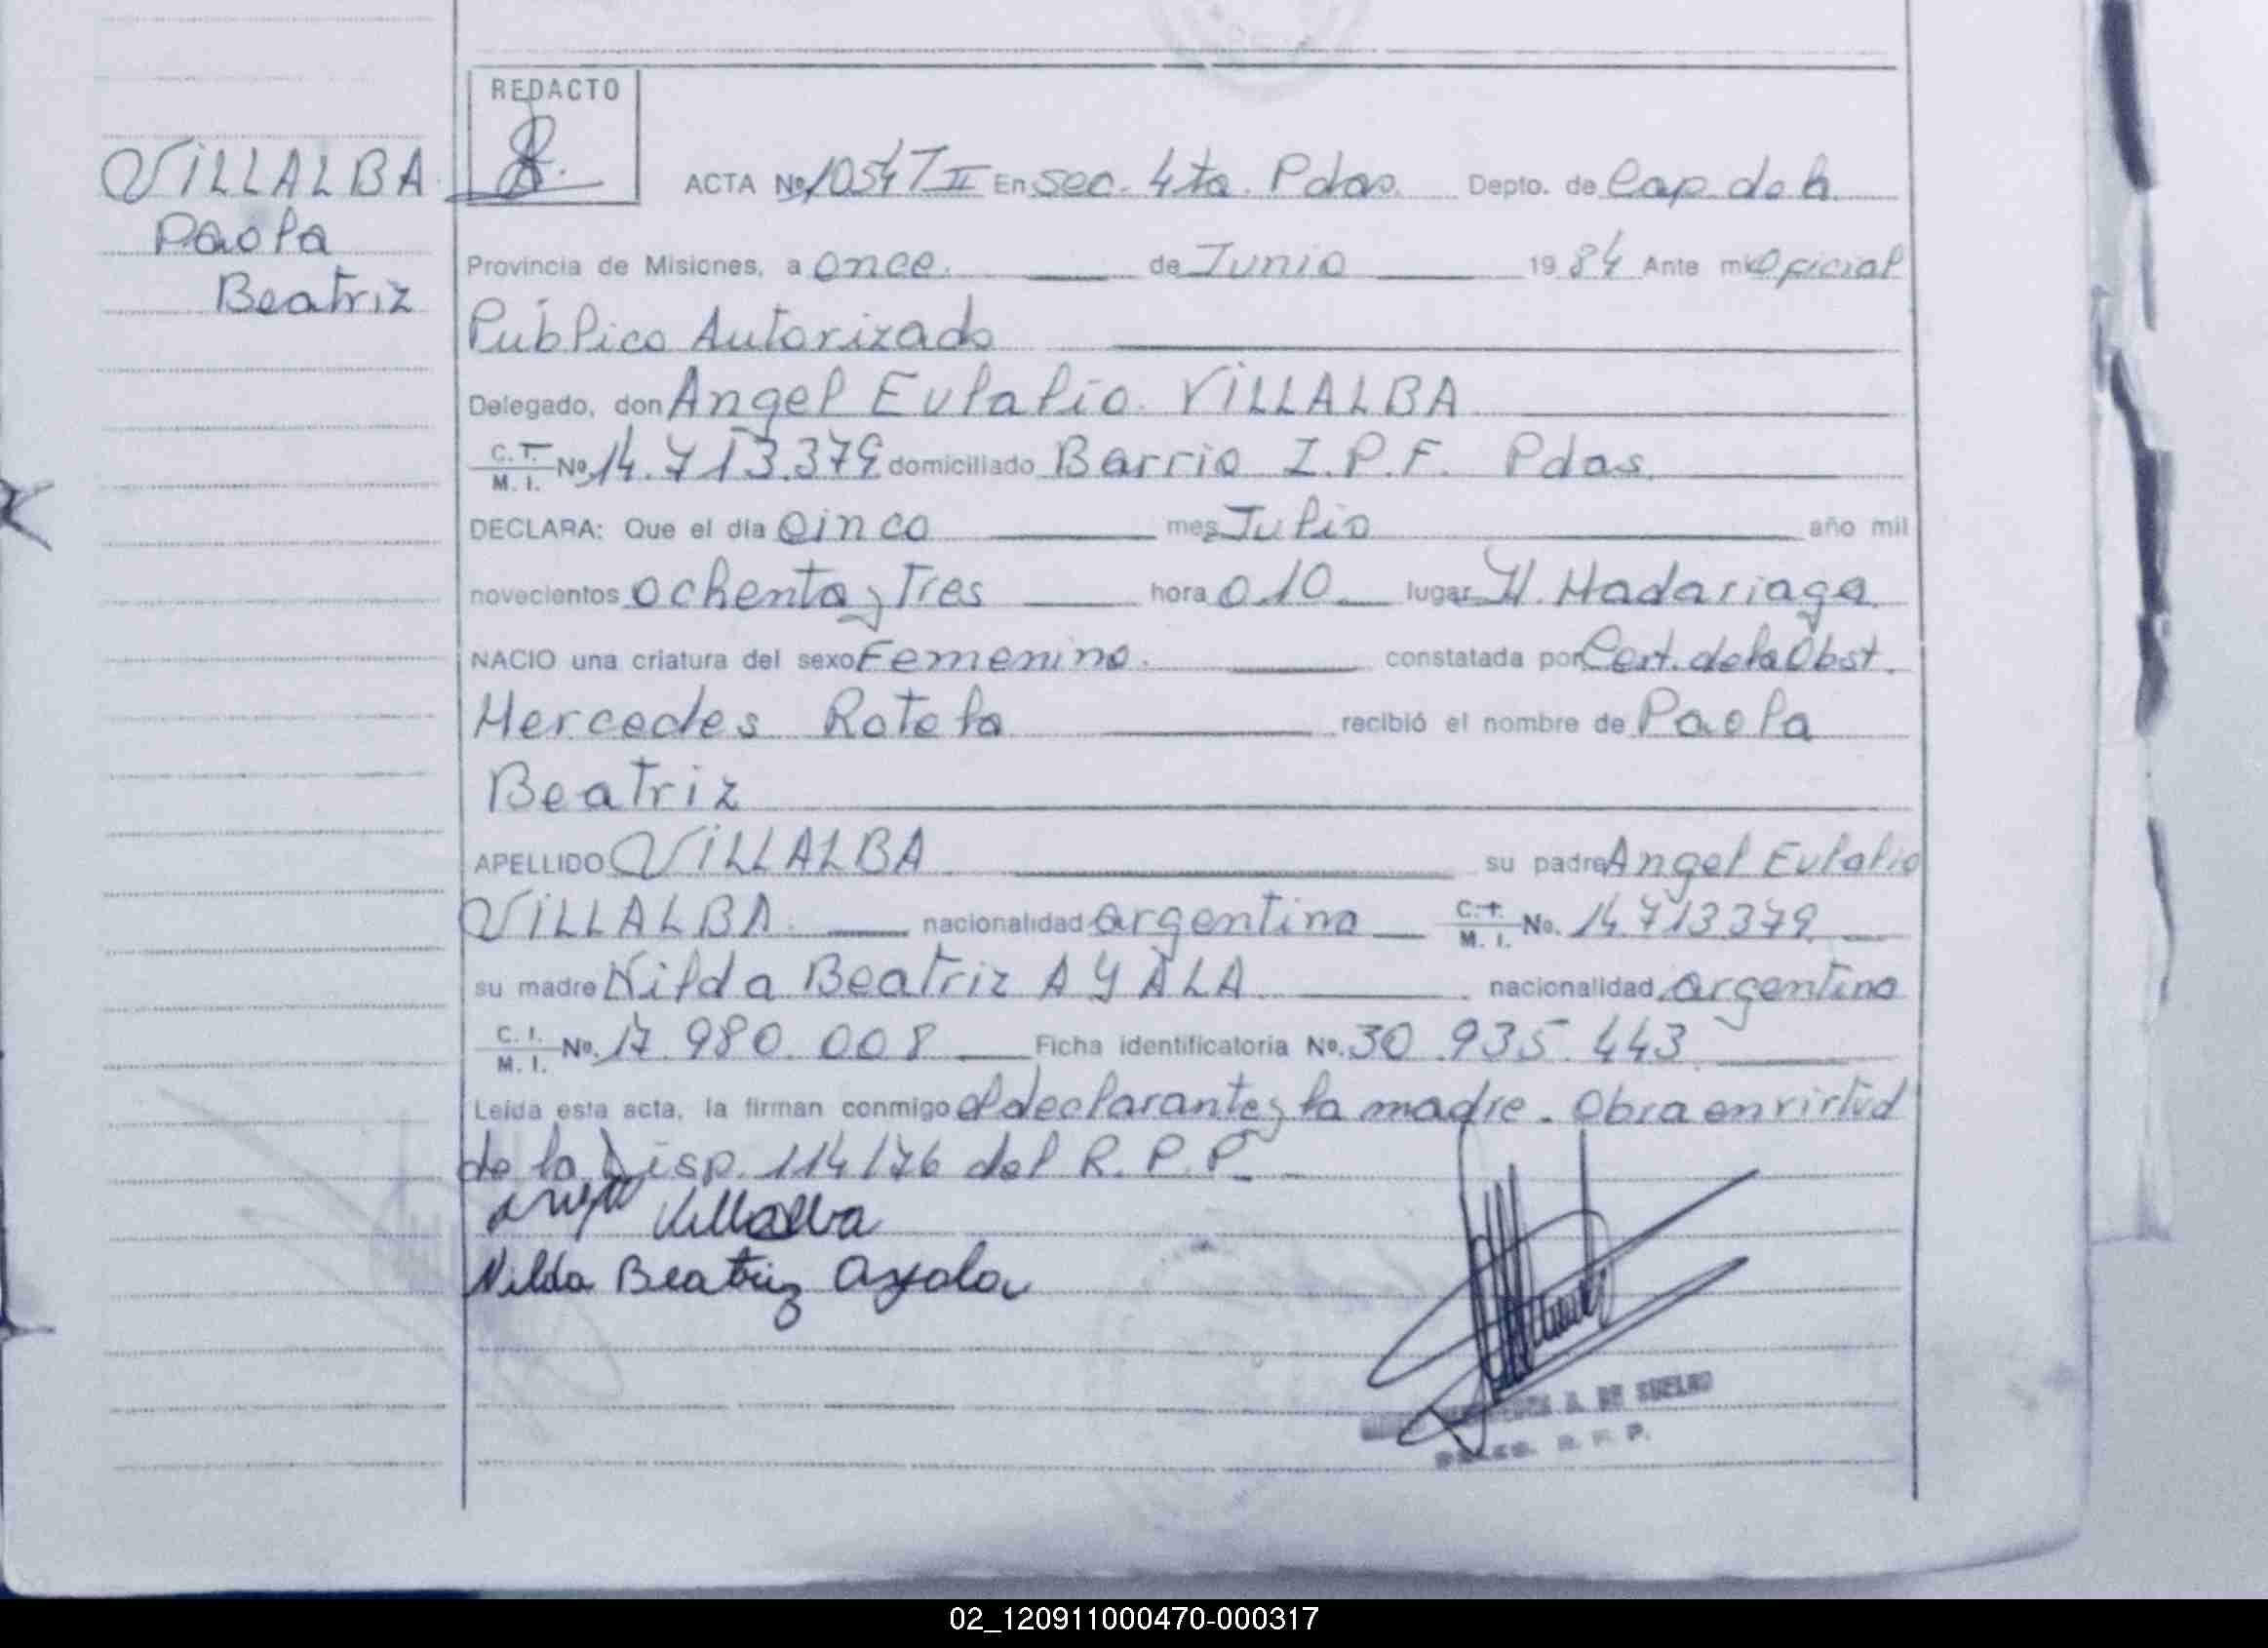 REDACTO
VILLALBA
Paola
Beatriz
ACTA Nº 10547 II En sec. 4ta. Pdas. Depto. de Cap. de la
Provincia de Misiones, a once. de Junio 1984 Ante mi Oficial
Público Autorizado
Delegado, don Angel Eulalio VILLALBA
C. I. M. I. Nº 14.713.379 domiciliado Barrio I.P.F. Pdas.
DECLARA: Que el día cinco mes Julio año mil
novecientos ochenta y Tres hora 0.10 lugar H. Madariaga
NACIO una criatura del sexo Femenino. constatada por Cert. de la Obst.
Mercedes Rotela recibió el nombre de Paola
Beatriz
APELLIDO VILLALBA su padre Angel Eulalio
VILLALBA. nacionalidad argentina C. I. M. I. No. 14.713.379
su madre Nilda Beatriz AYALA nacionalidad argentina
C. I. M. I. Nº. 17.980.008 Ficha identificatoria Nº. 30.935.443
Leída esta acta, la firman conmigo el declarante y la madre. Obra en virtud
de la Disp. 114/76 del R.P.P.
Angel Villalba
Nilda Beatriz Ayala
A. DE
R. P. P.
02_120911000470-000317